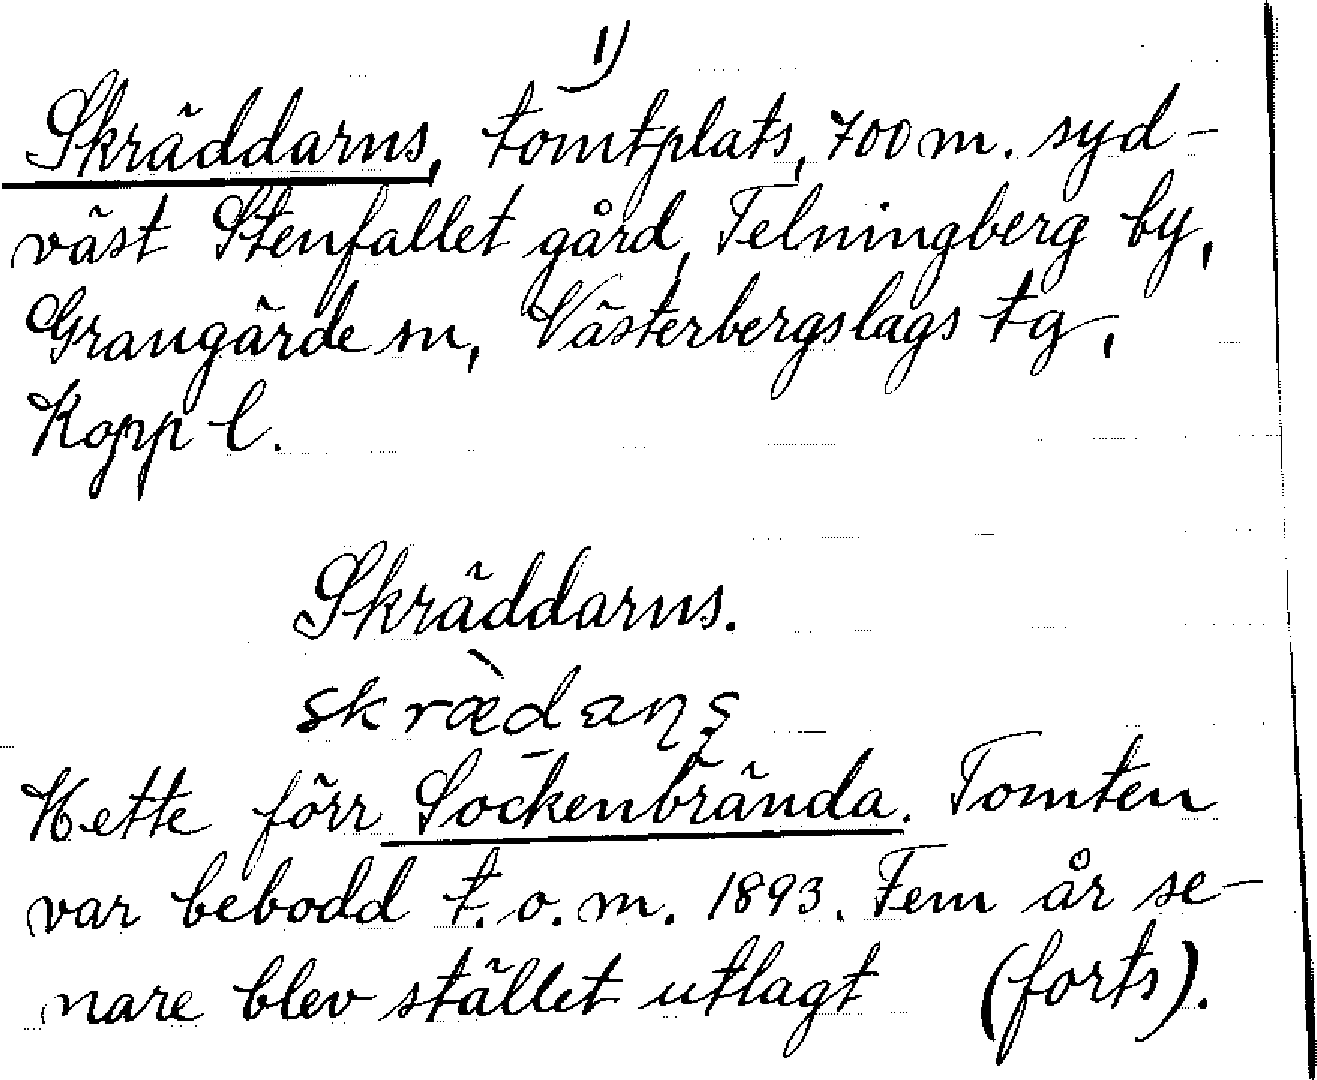 1)
Skräddarns, tomtplats, 700 m. syd-
väst Stenfallet gård, Telningberg by,
Grangärde sn, Västerbergslags tg,
Kopp l.
Skräddarns.
skræ̀daṇṣ
Hette förr Sockenbrända. Tomten
var bebodd t.o.m. 1893. Fem år se-
nare blev stället utlagt (forts).